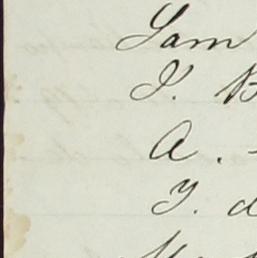 Sam
J. B
A.
J. d